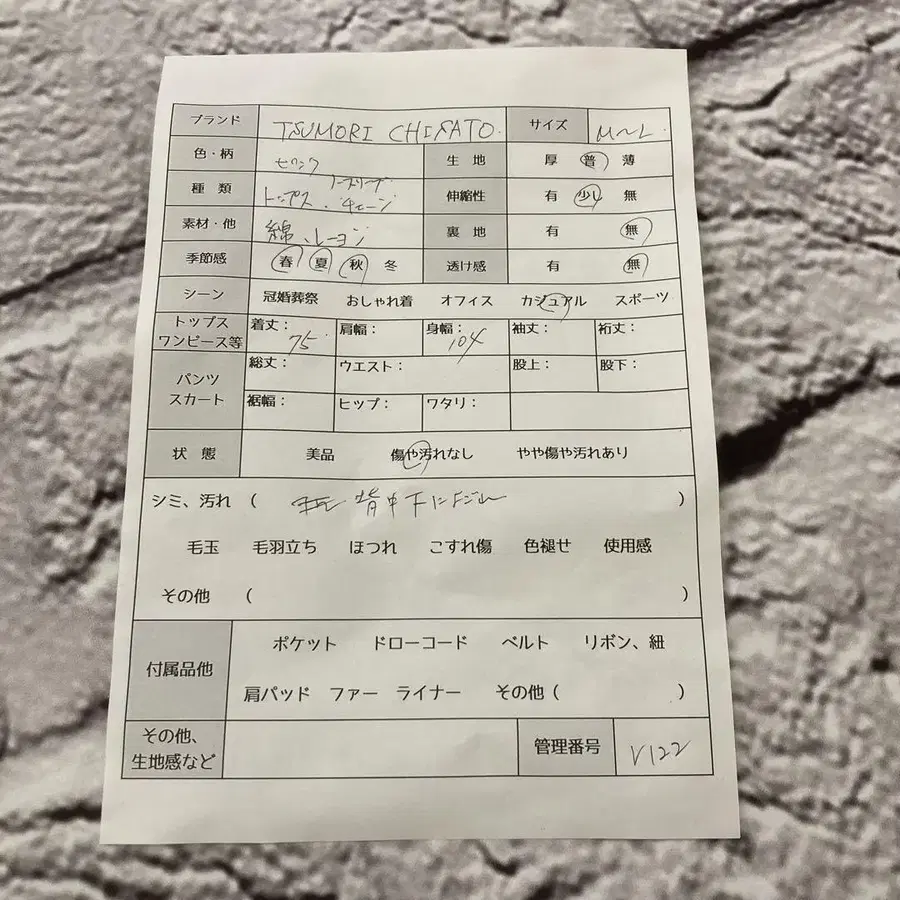 ブランド TSUMORI CHISATO. サイズ M〜L.
色・柄 ピンク 生地 厚 普 薄
種類 ノースリーブ トップス、チェーン 伸縮性 有 少し 無
素材・他 綿、レーヨン 裏地 有 無
季節感 春 夏 秋 冬 透け感 有 無
シーン 冠婚葬祭 おしゃれ着 オフィス カジュアル スポーツ
トップス ワンピース等 着丈: 75 肩幅: 身幅: 104 袖丈: 裄丈:
パンツ スカート 総丈: ウエスト: 股上: 股下:
裾幅: ヒップ: ワタリ:
状態 美品 傷や汚れなし やや傷や汚れあり
シミ、汚れ ( 背中下に )
毛玉 毛羽立ち ほつれ こすれ傷 色褪せ 使用感
その他 ( )
付属品他 ポケット ドローコード ベルト リボン、紐
肩パッド ファー ライナー その他 ( )
その他、生地感など 管理番号 V122